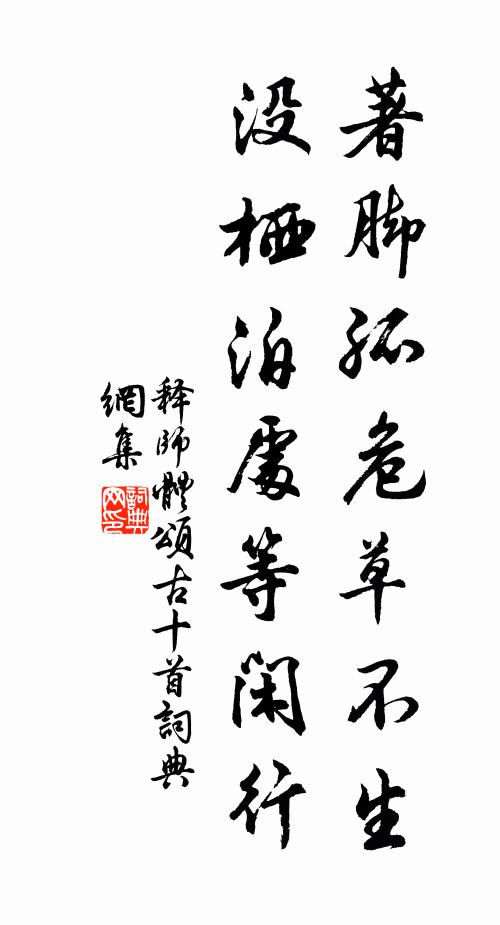 著脚孤危草不生
没栖泊處等闲行
释師體頌古十首詞典
網集
詞典
网印